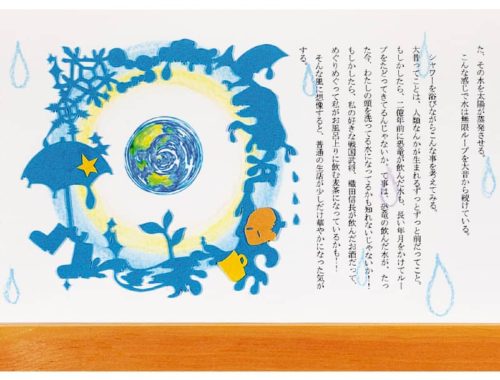 た、その水を太陽が蒸発させる。
こんな感じで水は無限ループを大昔から続けている。
シャワーを浴びながらこんな事を考えてみる。
大昔ってことは、人類なんかが生まれるずっとずっと前だってこと。
もしかしたら、二億年前に恐竜が飲んだ水も、長い年月をかけてルー
プをたどってきてるんじゃないか、て事は、恐竜の飲んだ水が、たっ
た今、わたしの頭を洗ってる水になってるかも知れないじゃないか!!
もしかしたら、私の好きな戦国武将、織田信長が飲んだお酒だって、
めぐりめぐって私がお風呂上りに飲む麦茶になっているかも!!
そんな風に想像すると、普通の生活が少しだけ華やかになった気が
する。